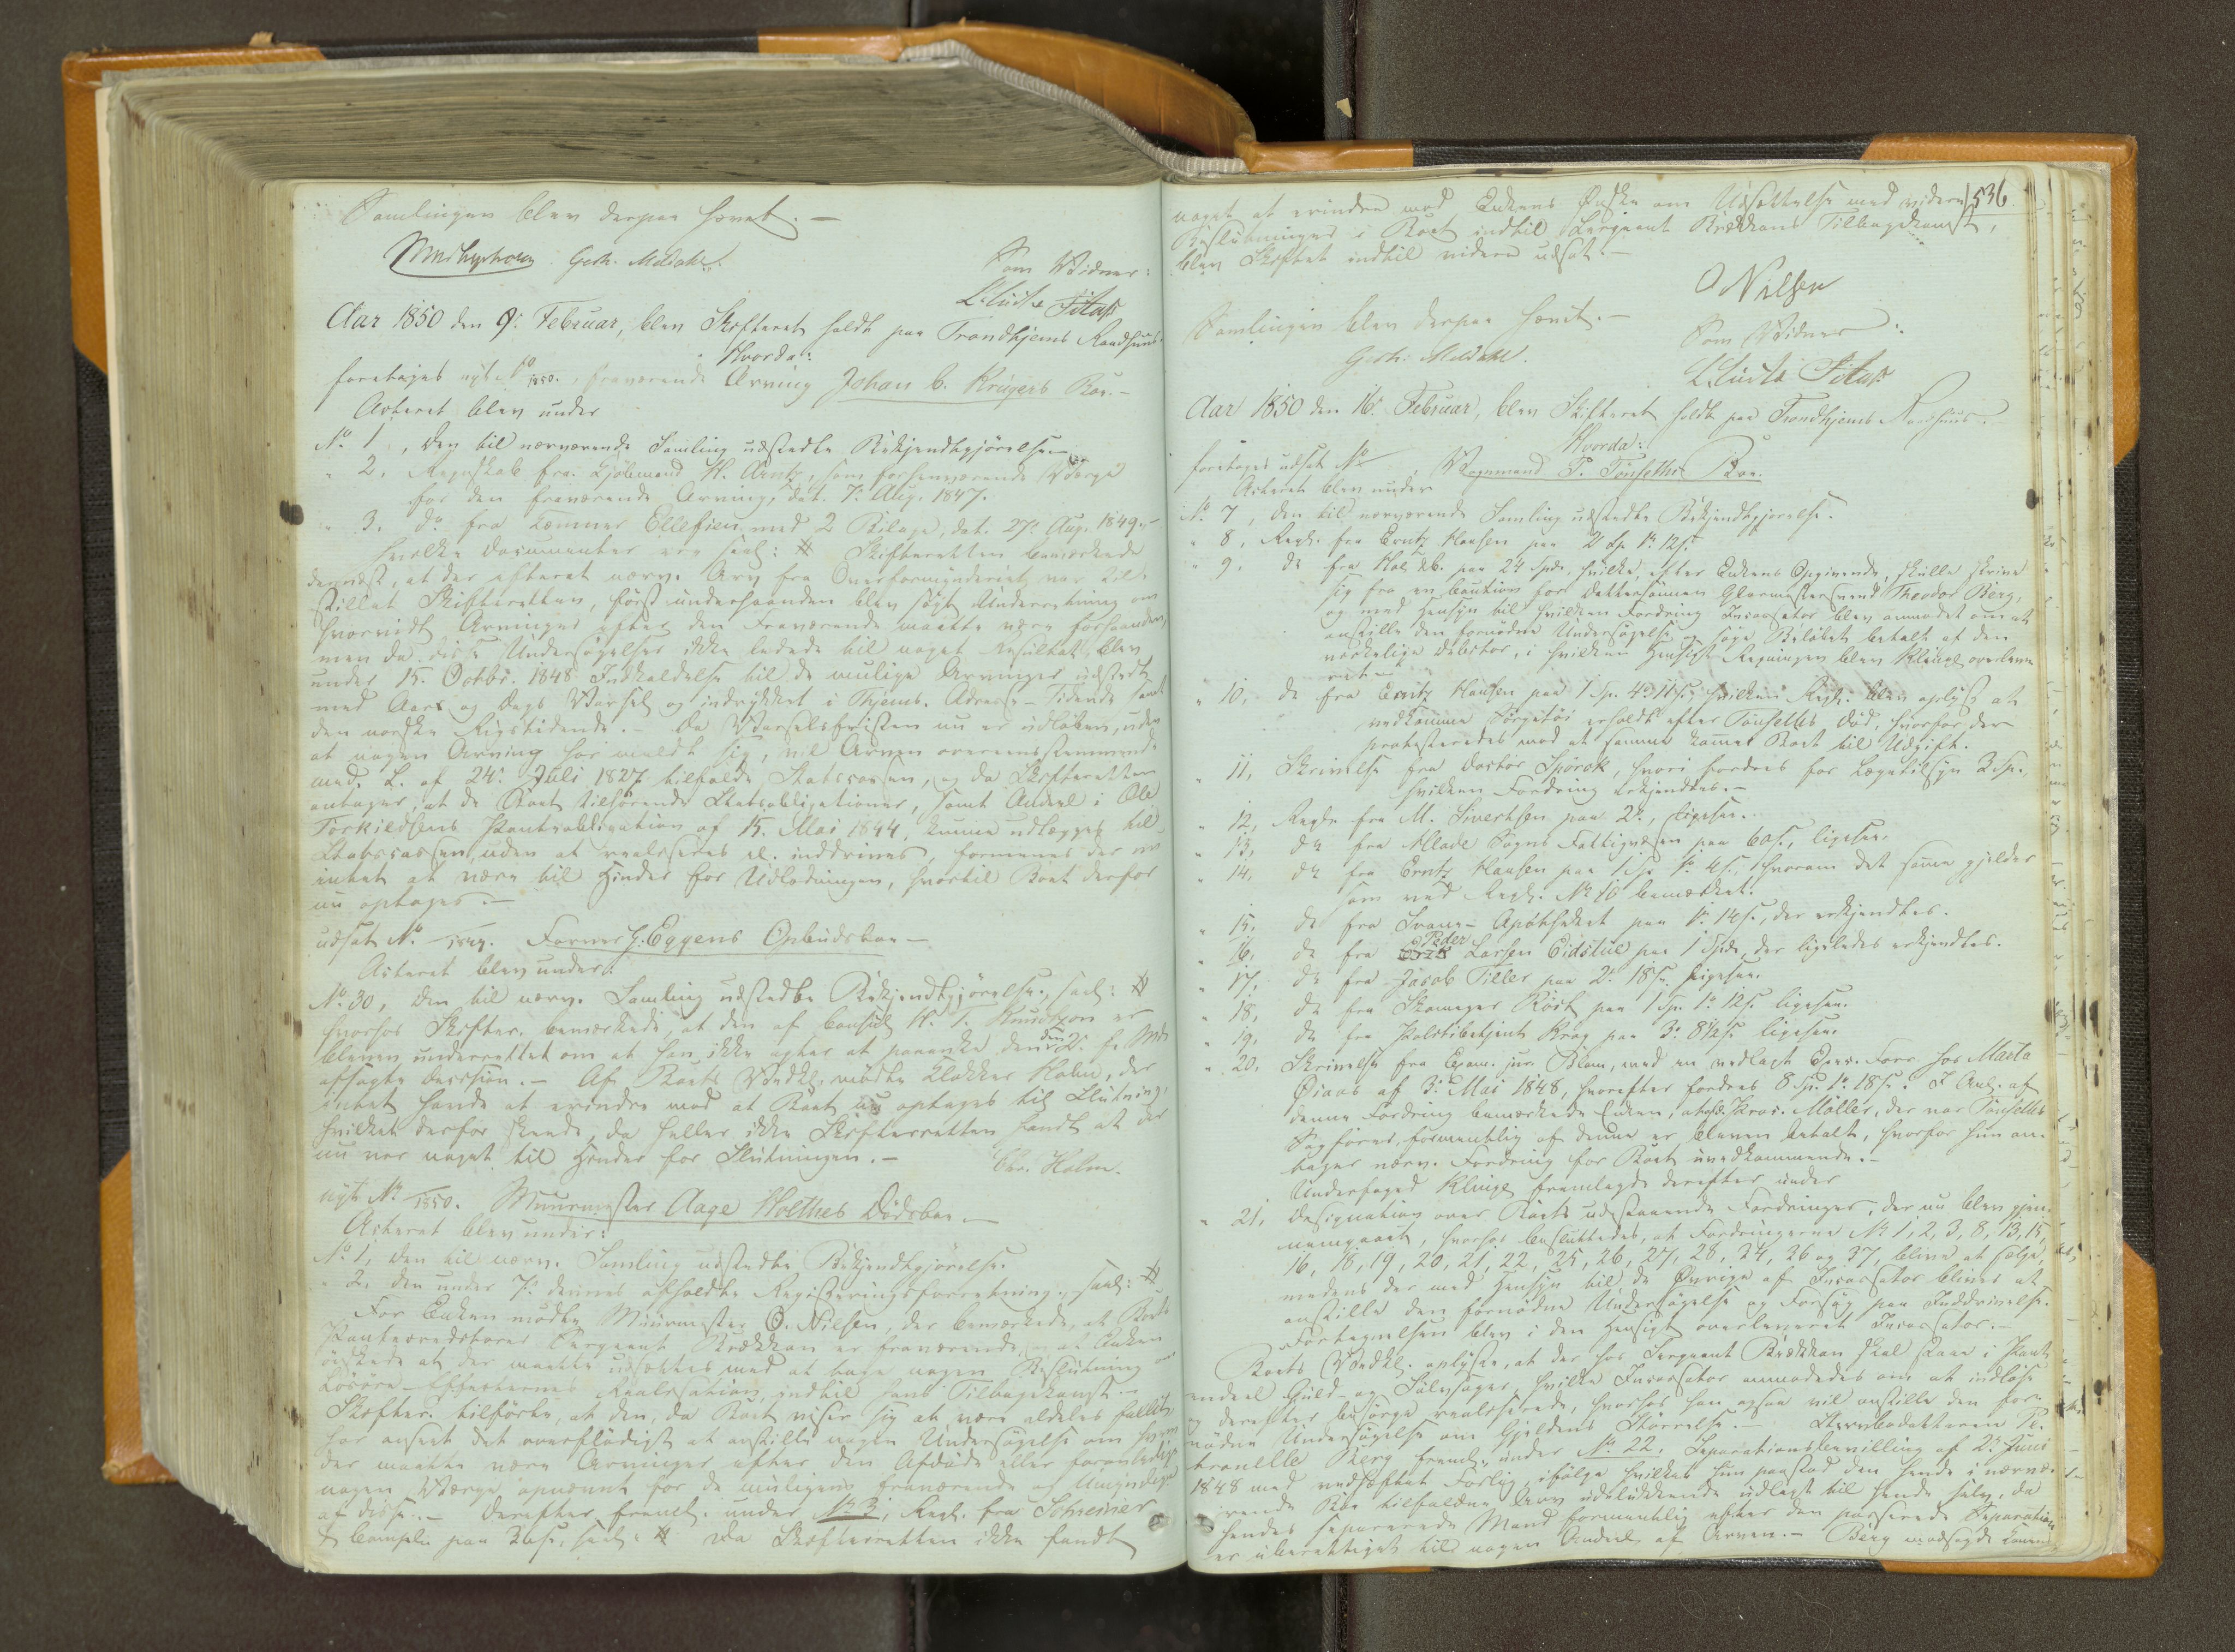 Samlingen blev derpaa hævet. –
Gerh. Meldahl.
Som Vidner:
L. Lund. Fitas
Aar 1850 den 9' Februar, blev Skifteret holdt paa Trondhjems Raadhuus
Hvorda:
foretoges nyt No /1850. fraværende Arving Johan C. Krügers Boe. –
Acteret blev under
No 1, den til nærværende Samling udstedte Bekjendtgjørelse. –
" 2. Regnskab fra Kjøbmand H. Arntz, som forhenværende Værge
for den fraværende Arving, dat. 7' Aug. 1847.
" 3. do fra Kæmner Ellefsen med 2 Bilage, dat. 27' Aug. 1849. –
hvilke Documenter ere saal: # Skifteretten bemærkede
dernæst, at der efterat nærv. Arv fra Overformynderiet var til-
stillet Skifteretten, først underhaanden blev søgt Underretning om
hvorvidt Arvinger efter den Fraværende maatte være forhaanden,
men da disse Undersøgelser ikke ledede til noget Resultat, blev
under 15. Octbr. 1848 Indkaldelse til de mulige Arvinger udstedt
med Aars og Dags Varsel og indrykket i Thjems. Adresse-Tidende samt
den norske Rigstidende. – Da Varselsfristen nu er udløben, uden
at nogen Arving har meldt sig, vil Arven overeensstemmende
med L. af 24' Juli 1827 tilfalde Statscassen, og da Skifteretten
antager, at de Boet tilhørende Statsobligationer, samt Andeel i Ole
Torkildsens Panteobligation af 15. Mai 1844, kunne udlægges til
Statscassen, uden at realiseres el. inddrives, formenes der nu
intet at være til Hinder for Udlodningen, hvortil Boet derfor
nu optoges. –
udsat No /1849. Farver H. Eggens Opbudsboe –
Acteret blev under:
No 30, den til nærv. Samling udstedte Bekjendtgjørelse, saal: #
hvorhos Skifter. bemærkede, at den af Consul H. T. Knudtzon er
bleven underrettet om at han ikke agter at paaanke den
afsagte Decision. – Af Boets Vedkl. mødte Klokker Holm, der
intet havde at erindre mod at Boet nu optages til Slutning,
hvilket derfor skeede, da heller ikke Skifteretten fandt at der
nu var noget til Hinder for Slutningen. –
Chr. Holm.
nyt No /1850. Muurmester Aage Holthes Dødsboe. –
Acteret blev under:
No 1, den til nærv. Samling udstedte Bekjendtgjørelse.
" 2. den under 7' dennes afholdte Registreringsforretning, saal: #
For Enken mødte Muurmester O. Nilsen, der bemærkede, at Boets
Panteæreditorer Sergeant Brækkan er fraværende, og at Enken
ønskede at der maatte udsættes med at tage nogen Beslutning om
Løsøre-Effecternes Realisation, indtil hans Tilbagekomst. –
Skifter. tilførte, at den, da Boet viser sig at være aldeles fallit,
har anseet det overflødigt at anstille nogen Undersøgelse om hvem
der maatte være Arvinger efter den Afdøde eller foranlediget
nogen Værge opnævnt for de muligens fraværende og Umyndige
af disse. – Derefter freml. under No 3, Regl. fra Schreiner
& Compagni paa 36 s, saal: # Da Skifteretten ikke fandt
536
noget at erindre mod Enkens Ønske om Udsættelse med videre
Beslutninger i Boet indtil Sergeant Brækkans Tilbagekomst,
blev Skiftet indtil videre udsat. –
O Nilsen
Samlingen blev derpaa hævet. –
Gerh. Meldahl.
Som Vidner:
L. Lund. Fitas
Aar 1850 den 16' Februar, blev Skifteret holdt paa Trondhjems Raadhuus.
Hvorda:
foretoges udsat No , Vognmand P. Tønseths Boe.
Acteret blev under
No 7, den til nærværende Samling udstedte Bekjendtgjørelse.
" 8, Regl. fra Erntz Hansen paa 2 Sp. 1' 12 s.
" 9, do fra paa 24 Spd., hvilke, efter Enkens Opgivende, skulle skrive
sig fra en Caution for Dattersønnen Glarmestersvend Theodor Berg,
og med Hensyn til hvilken Fordring Incassator blev anmodet om at
anstille den fornødne Undersøgelse og søge Beløbet betalt af den
virkelige Debitor, i hvilken Hensigt Regningen blev Klinge overleve-
ret. –
" 10, do fra Erntz Hansen paa 1 Sp. 4' 11 s, hvilken Regl. blev oplyst at
vedkomme Sørgetøi erholdt efter Tønseths Død, hvorfor der
protesteredes mod at samme kommer Boet til Udgift.
" 11, Skrivelse fra Doctor Sjørck, hvori fordres for Lægetilsyn 3 Sp.
hvilken Fordring erkjendtes. –
" 12, Regl. fra M. Sivertsen paa 2', ligesaa.
" 13, do fra Hlade Sogns Fattigvæsen paa 60 s, ligesaa.
" 14, do fra Erntz Hansen paa 1 Sp. 1' 4 s, hvorom det samme gjelder
som ved Regl. No 10 bemærket.
" 15, do fra Svane-Apotheket paa 1' 14 s, der erkjendtes.
" 16, do fra Peder Larsen Eidstue paa 1 Spd., der ligeledes erkjendtes.
" 17, do fra Jacob Tiller paa 2' 18 s ligesaa.
" 18, do fra Skomager Røst paa 1 Sp. 1' 12 s ligesaa.
" 19, do fra Politibetjent Krog paa 3' 8½ s ligesaa.
" 20, Skrivelse fra Exam. jur. Blom, med en vedlagt Exec. Forr. hos Marta
Øiaas af 3' Mai 1848, hvorefter fordres 8 Sp. 1' 18 s. I Anl. af
denne Fordring bemærkede Enken, at afd. Proc. Møller, der var Tønseths
Sagfører, formentlig af denne er bleven betalt, hvorfor hun an-
tager nærv. Fordring for Boet uvedkommende. –
Underfoged Klinge fremlagde derefter under
" 21, Designation over Boets udestaaende Fordringer, der nu blev gjen-
nemgaaet, hvorhos besluttedes, at Fordringerne No 1, 2, 3, 8, 13, 15,
16, 18, 19, 20, 21, 22, 25, 26, 27, 28, 34, 36 og 37, blive at sælge,
medens der med Hensyn til de Øvrige af Incassator bliver at
anstille den fornødne Undersøgelse og Forsøg paa Inddrivelse.
Fortegnelsen blev i den Hensigt overleveret Incassator. –
Boets Vedkl. oplyste, at der hos Sergeant Brækkan skal staae i Pant
endeel Guld- og Sølvsager, hvilke Incassator anmodedes om at indløse
og derefter besørge realiserede, hvorhos han ogsaa vil anstille den for-
nødne Undersøgelse om Gjeldens Størrelse. – Stervbodatteren Pe-
tronelle Berg freml. under No 22. Separationsbevilling af 2' Juni
1848 med vedhæftet Forlig, ifølge hvilket hun paastod den hende i nærvæ-
rende Boe tilfaldne Arv udelukkende udlagt til hende selv, da
hendes separerede Mand formentlig efter den passerede Separation
er uberettiget til nogen Andeel af Arven. – Berg modsagde